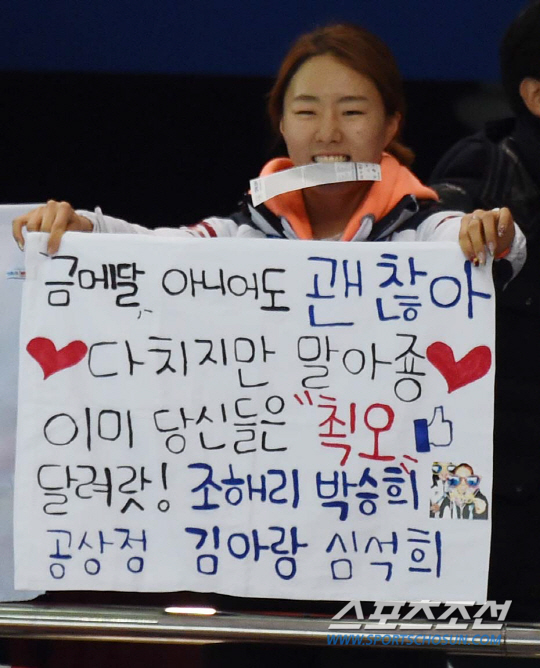 금메달, 아니어도 괜찮아
다치지만 말아죵
이미 당신들은 "최오"
달려랏! 조해리 박승희
공상정 김아랑 심석희
스포츠조선
WWW.SPORTSCHOSUN.COM